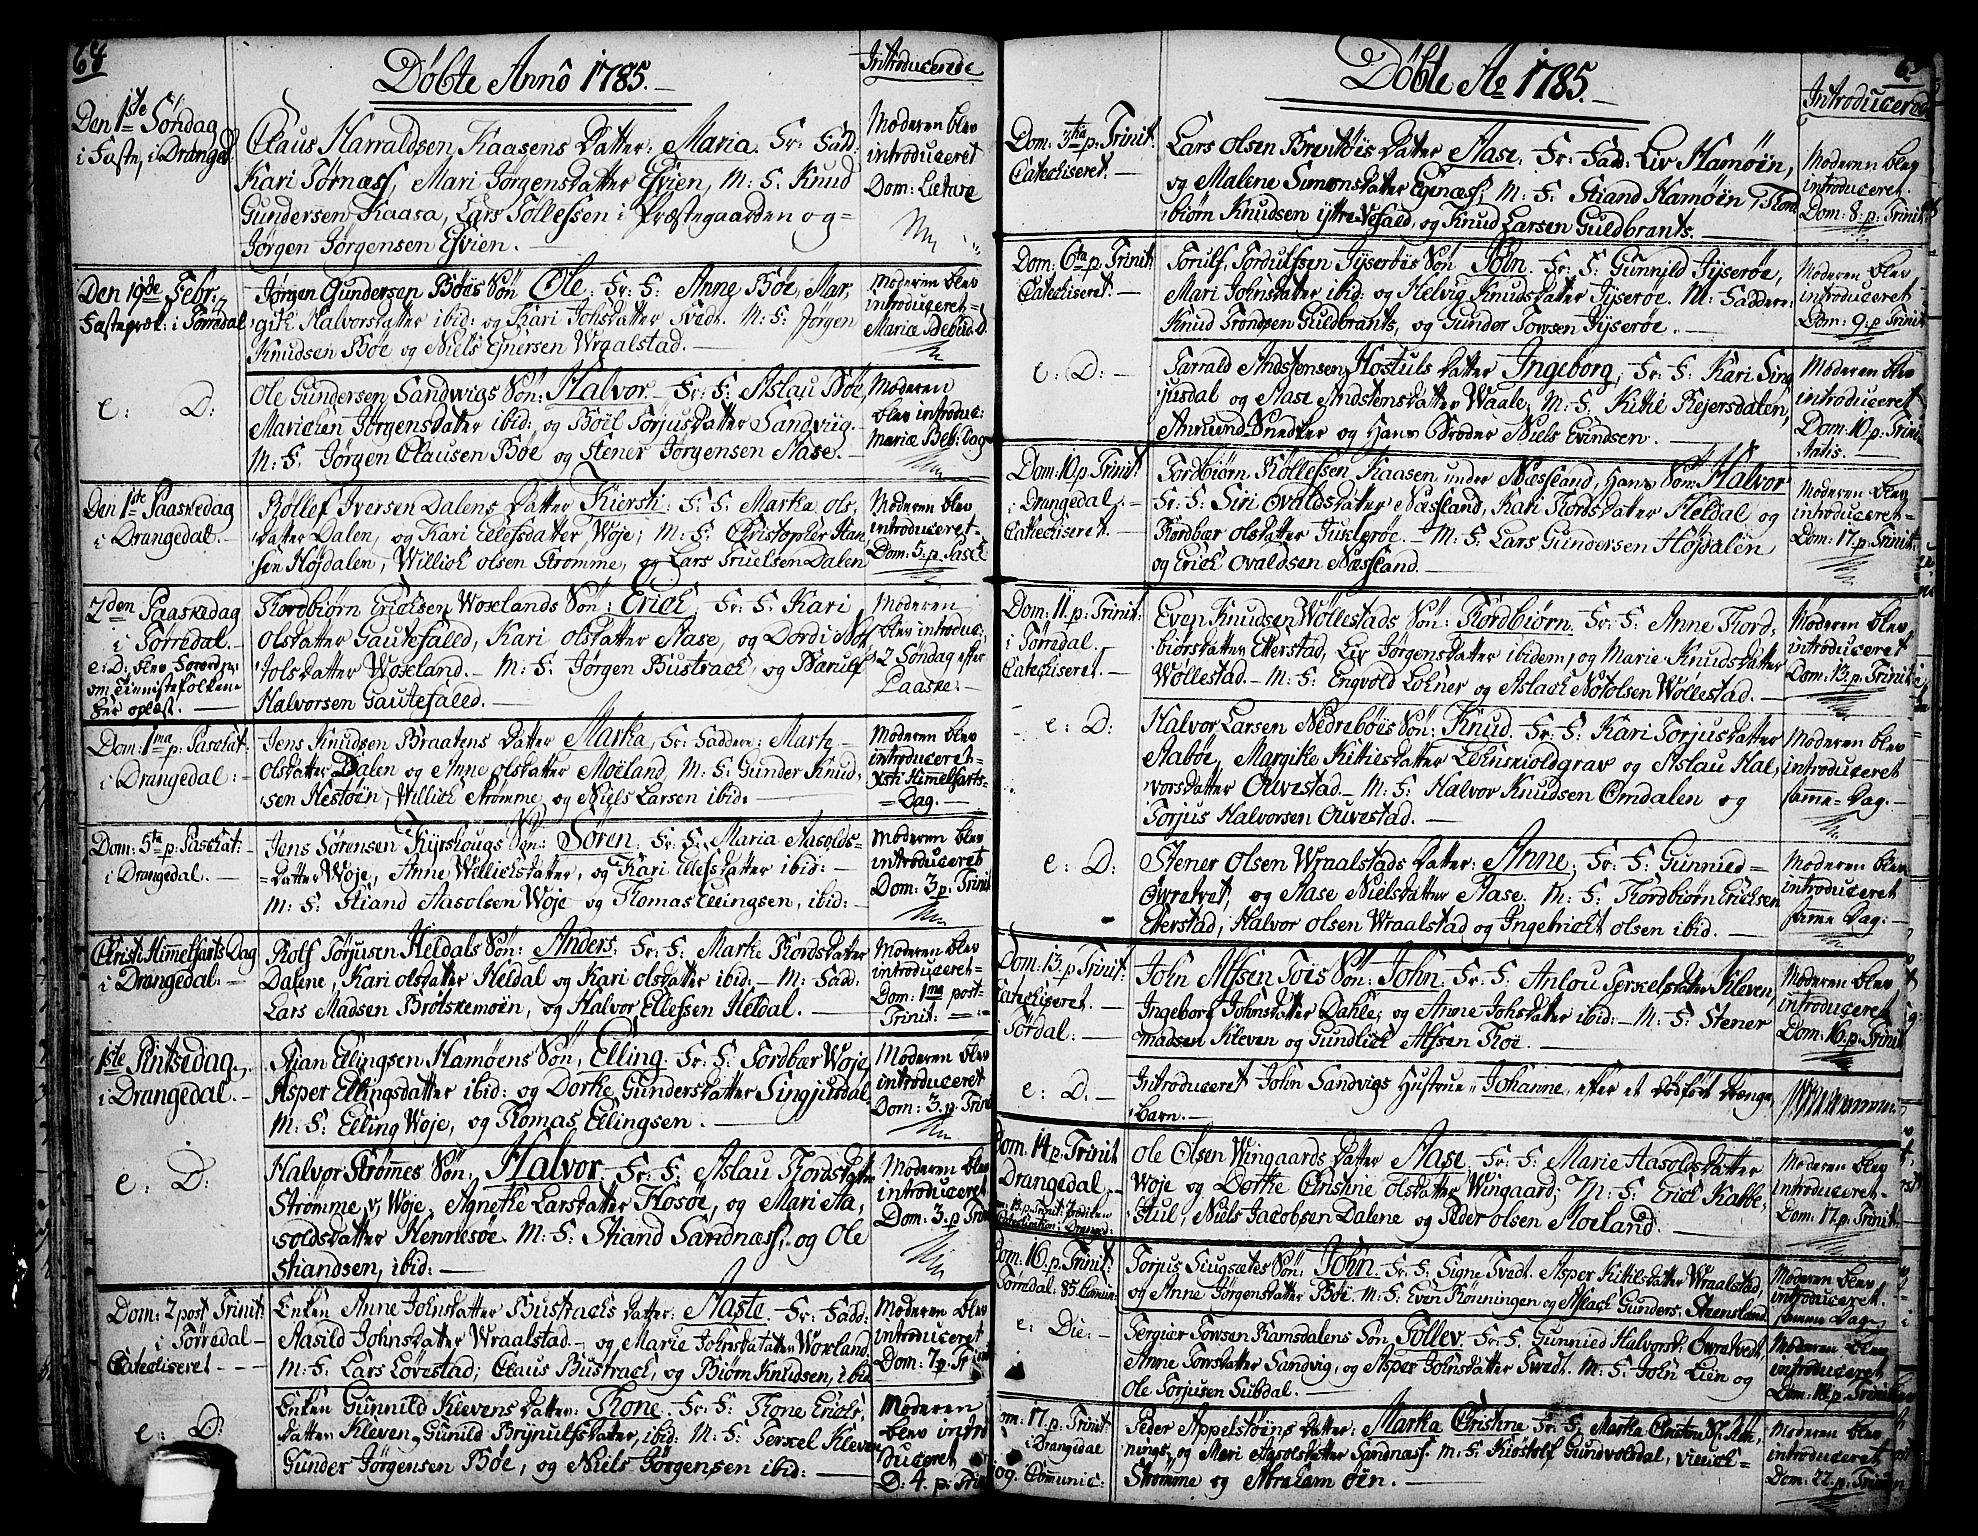 64
Døbte Annô 1785.
Introducerede
Den 1ste Søndag
i Faste, i Dranged:
Claus Harraldsen Kaasens Datter: Maria. Fr: Fadd:
Kari Tørnæss, Mari Jørgensdatter Esvien, M: F. Knud
Gundersen Kaasa, Lars Tollefsen i Præstegaarden og
Jørgen Jørgensen Esvien.
Moderen blev
introduceret
Dom: Lætare
Den 19de Febr:
Fastepræk: i Tørredal
Jørgen Gundersen Bøes Søn Ole: Fr: F: Anne Bøe, Mar,
Halvorsdatter ibid: og Kari Johsdatter Tvedt. M: F: Jørgen
Knudsen Bøe og Niels Ejnersen Wraalstad.
Moderen blev
introduceret
Mariæ Bebud:D.
e: D:
Ole Gundersen Sandwigs Søn: Halvor. Fr: F: Aslau Bøe,
Marichen Jørgensdatter ibid: og Bøil Torjusdatter Sandviig.
M: F. Jørgen Clausen Bøe og Stener Jørgensen Aase.
Moderen
blev introduc:
Mariæ Beb: Dag
Den 1ste Paaskedag
i Drangedal.
Røllef Iversen Dalens Datter Kiersti: F: F. Martha ols,
datter Dalen, og Kari Ellefsdatter Woje; M: F: Christopher Han
sen Højdalen, Willich olsen Strømme, og Lars Truelsen Dalen
Moderen blev
introduceret
Dom: 5. p: Pasch
2den Paaskedag
i Tørredal.
e: D: blev Forordn:
om Tienistefolkene
her oplæst.
Thordbiørn Ericksen Woxlands Søn: Erich, Fr: F. Kari
olsdatter Gautefalld, Kari olsdatter Aase, og Dordi Not
tolsdatter Woxland. M: F: Jørgen Bustrack, og Barulf
Halvorsen Gautefalld.
Moderen
blev introduc:
2 Søndag efter
Paaske:
Dom: 1ma p: Paschat:
i Drangedal:
Jens Knudsen Braatens Datter Martha, Fr: Faddere: Marte
olsdatter Dalen og Anne olsdatter Moeland, M: F: Gunder Knud
sen Hestøen, Willich Strømme, og Niels Larsen ibid:
Moderen blev
introduceret
Xsti Himelfarts
Dag.
Dom: 5ta p: Paschat:
i Drangedal.
Jens Sørensen Kyrshougs Søn: Søren. Fr: F: Maria Aasolds
datter Woje, Anne Willichsdatter, og Kari Ellefsdatter ibid:
M: F: Stiand Aasolsen Woje og Thomas Ellingsen, ibid:
Moderen blev
introduceret
Dom: 3. p: Trinit
Christi Himmelfarts Dag
i Drangedal:
Rolf Torjusen Heldals Søn: Anders. Fr: F: Marte Thordsdatter
Dalene, Kari olsdatter Heldal og Kari olsdatter ibid: M: Fadd:
Lars Madsen Brøtskemoen, og Halvor Ellefsen Heldal.
Moderen blev
introduceret
Dom: 1ma post
Trinit:
1ste Pintsedag,
i Drangedal.
Stian Ellingsen Hamøens Søn, Elling. Fr: F. Tordbær Woje,
Asper Ellingsdatter ibid: og Dorthe Gundersdatter Singjusdal
M: F: Elling Woje, og Thomas Ellingsen.
Moderen blev
introduceret
Dom: 3. p: Trinit
e: D:
Halvor Strømmes Søn: Halvor. Fr: F. Aslau Thordsdatter
Strømme v, Woje, Agnethe Larsdatter Hosøe, og Mari Aa,
soldsdatter Hennesøe. M: F: Stiand Sandnæss, og Ole
Stiandsen, ibid:
Moderen blev
introduceret
Dom: 3. p: Trinit
Dom: 2 post Trinit:
i Tørredal
Catechiseret
Enken Anne Johnsdatter Bustrachs datter: Aaste. Fr: Fadd:
Aasild Johnsdatter Wraalstad, og Marie Johnsdatter Woxland
M: F. Lars Lovestad; Claus Bustrach, og Biørn Knudsen, ibid
Moderen blev
introduceret
Dom: 7. p: Trinit
e: D:
Enken Gunnild Klevens datter: Thone. Fr: F. Thone Erichs,
datter Kleven, Gunild Brynulfsdatter, ibid: M: F: Terkel Kleven
Gunder Jørgensen Bøe, og Niels Jørgensen ibid:
Moderen
blev intro
duceret
D: 4. p: Trin
Døbte Ao 1785.
Introducered
Dom: 3tia p: Trinit:
Catechiseret.
Lars Olsen Brentøis datter Aase. Fr: Fad: Liv Hamøen,
og Malene Simonsdatter Egenæss, M: F: Stiand Hamøen, Thord
biørn Knudsen ijttre Nefald, og Knud Larsen Guldbrants.
Moderen blev
introduceret.
Dom: 8. p: Trinit:
Dom: 6ta p: Trinit
Catechiseret.
Torulf Tordulfsen Tyserøis Søn John. Fr: F: Gunnild Tyserøe,
Mari Johnsdatter ibid: og Helvig Knudsdatter Tyserøe. M: Faddere:
Knud Trondsen Guldbrants, og Gunder Towsen Tyserøe.
Moderen blev
introduceret
Dom: 9. p Trinit
e: D:
Tarrald Andstensen Hostuls datter Ingeborg, Fr: F: Kari Sing
jusdal og Aase Andstensdatter Waale; M: F. Kittil Rejersdalen,
Annund Snedker og Hans Broder Niels Evindsen.
Moderen blev
introduceret
Dom: 10. p: Trinit
Dom: 10. p: Trinit:
i Drangedal.
Catechiseret.
Tordbiørn Røllefsen Kaasen under Næssland, Hans Søn: Halvor
Fr: F: Siri Ovaldsdatter Næssland, Kari Thordsdatter Heldal og
Thordbær olsdatter Tuscherøe. M: F: Lars Gundersen Højdalen
og Erich Ovaldsen Næssland.
Moderen blev
introduceret
Dom: 17. p: Trinit:
Dom: 11. p: Trinit:
i Tørredal.
Catechiseret.
Even Knudsen Wøllestads Søn: Thordbiørn. Fr: F: Anne Thord,
biørsdatter Etterstad, Liv Jørgensdatter ibidem, og Marie Knudsdatter
Wøllestad. M: F: Engvold Lohner og Aslach Notolsen Wøllestad.
Moderen blev
introduceret
Dom: 13. p: Trinit
e: D:
Halvor Larsen Nedrebøis Søn: Knud. Fr: F: Kari Torjusdatter
Aabøe, Margithe Kittilsdatter Lohnskioldgrav og Aslau Hal,
vorsdatter Ouvestad. M: F: Halvor Knudsen Omdalen og
Torjus Halvorsen Ouvestad.
Moderen blev
introduceret
samme Dag.
e: D:
Stener Olsen Wraalstads datter: Anne, Fr: F: Gunnied
Øvretvet, og Aase Nielsdatter Aase. M: F: Thordbiørn Ericksen
Etterstad, Halvor olsen Wraalstad og Ingebricht olsen ibid.
Moderen blev
introduceret
samme Dag:
Dom: 13. p Trinit:
Catechiseret.
Tørdal:
John Alfsen Toïs Søn: John. Fr: F: Anlou Terkelsdatter Kleven,
Ingeborg Johnsdatter Dahle, og Anne Johsdatter ibid: M: F: Stener
Madsen Kleven og Gundlich Alfsen Thoe.
Moderen blev
introduceret
Dom: 16. p: Trinit
e: D.
Introduceret John Sandvigs Hustrue, Johanne, efter et dødfødt Drænge,
Barn.
Dom: 14. p: Trinit
Drangedal,
Ole Olsen Wingaards datter Aase, Fr: F: Marie Aasoldsdatter
Woje og Dorthe Christine olsdatter Wingaard; M: F: Erich Kabbe,
stul, Niels Jacobsen Dalene og Peder olsen Moeland.
Moderen blev
introduceret
Dom: 17. p: Trinit:
Dom: 16. p: Trinit:
Tørredal: 85. Comun:
Torjus Siugsætes Søn: John. Fr: F. Signe Tvedt. Asper Kittilsdatter Wraalstad,
og Anne Jørgensdatter Bøe. M: F: Even Rønningen og Aslach Gunders. Strensland
Moderen blev
introduceret.
samme Dag
e: Die:
Tergier Towsen Ramsdalens Søn Tollev. Fr: F. Gunnied Halvorsd. Øvretvedt,
Anne Torsdatter Sandvig, og Asper Johnsdatter Tvedt. M: F: John Lien og
Ole Torjusen Subdal.
Moderen blev
introduceret
Dom: 18. p: Trinit
Dom: 17. p: Trinit:
i Drangedal
og Comunic:
Peder Appelstøins datter: Martha Christine Fr: F:
nings, og Mari Aasolsdatter Sandnæss. M: F: Kiøstolf Gundvolsdal, Vilich
Strømme og Abraham Øen.
Moderen blev
introduceret
Dom: 22. p: Trinit